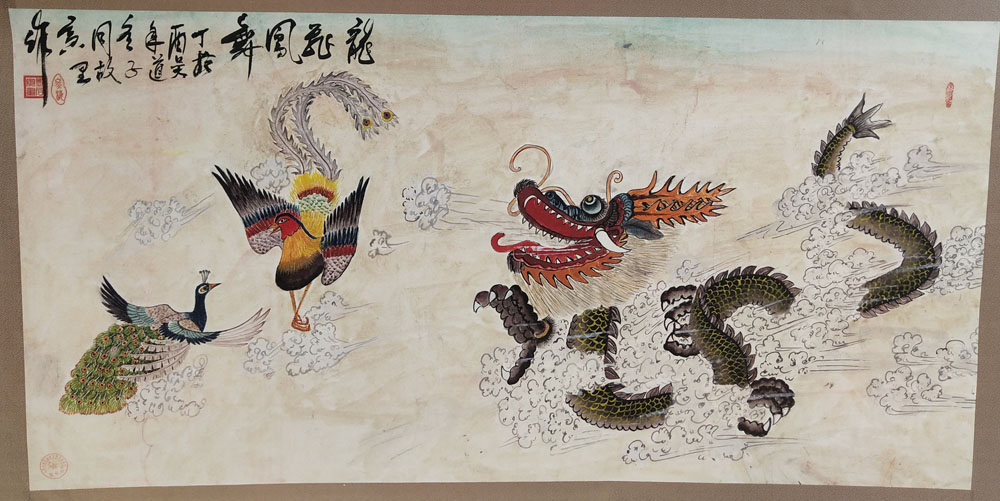 龍飛鳳舞
丁酉年冬
於吴道子故里
作